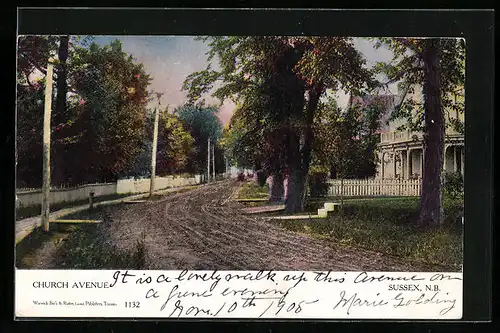 CHURCH AVENUE It is a lovely walk up this Avenue on
SUSSEX, N.B.
a fine evening
Warwick Bro's & Rutter, Limited Publishers, Toronto 1132
Nov. 10th 1905 Marie Golding